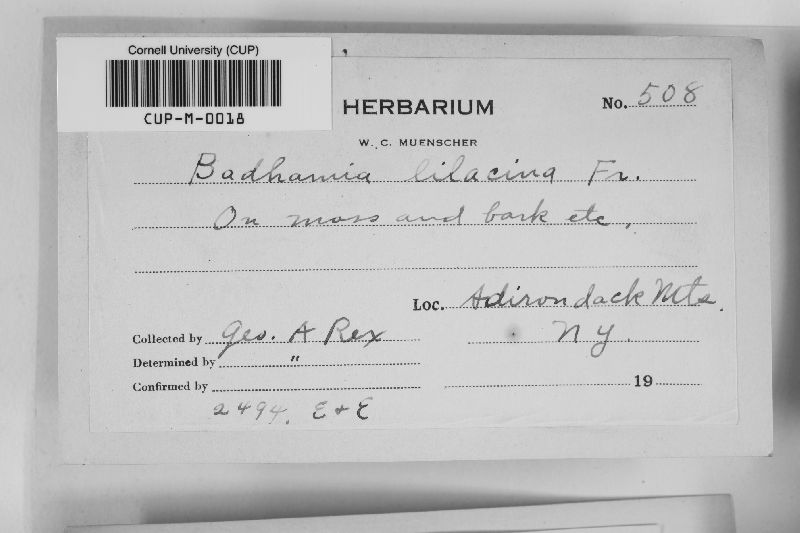 Cornell University (CUP)
CUP-M-0018
HERBARIUM
No. 508
W. C. MUENSCHER
Badhamia lilacina Fr.
On moss and bark etc,
Loc. Adirondack Mts.
N Y.
Collected by Geo. A Rex
Determined by "
Confirmed by
19
2494. E & E